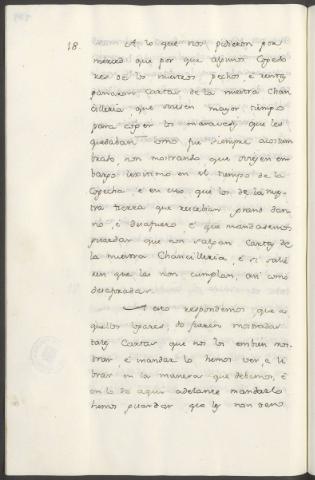 18. A lo que nos pidieron por
merced que por que algunos Cogedo
res de los nuestros pechos é rentas
ganaron Cartas de la nuestra Chan
cilleria, que oviesen mayor tiempo
para coger los maravedis que les
quedaban como fue siempre acostum
brado, non mostrando que oviesen em
bargo lexitimo en el tiempo de la
Cogecha é en eso que los de la nues
tra tierra que recebian grand dan
no, é desafuero, é que mandasemos
guardar que non salgan Cartas de
la nuestra Chancilleria, é si salie
ren que las non cumplan, asi como
desaforadas.
A esto respondemos, que a
quellos logares, do fueren mostradas
tales Cartas que nos lo embien mos
trar, é mandar lo hemos ver, é li
brar en la manera que debemos, é
en lo de aqui adelante mandarlo
hemos guardar que les non sean